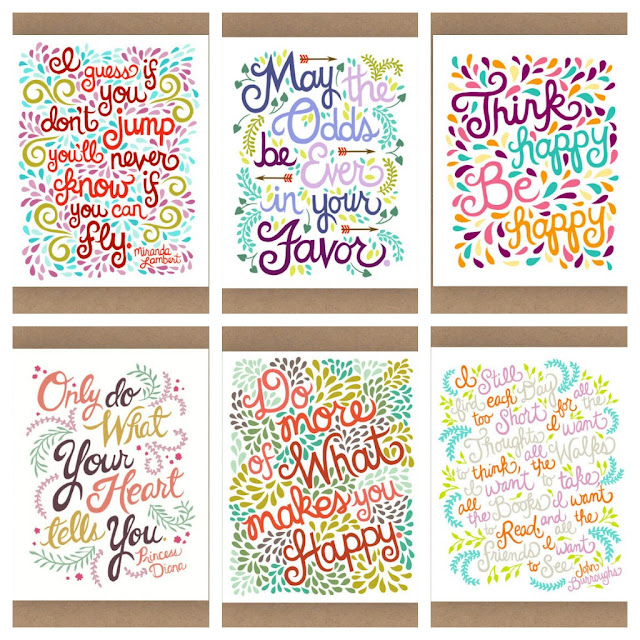 I
guess if
you
don't jump
you'll never
know if
you can
fly.
Miranda
Lambert
May the
Odds
be Ever
in your
Favor
Think
happy
Be
happy
Only do
What
Your
Heart
tells You.
Princess
Diana
Do
more
of What
makes you
Happy
I Still
find each Day
too Short for all the
Thoughts I want
to think, all the Walks
I want to take
all the Books I want
to Read and all the
Friends I want
to See
John
Burroughs